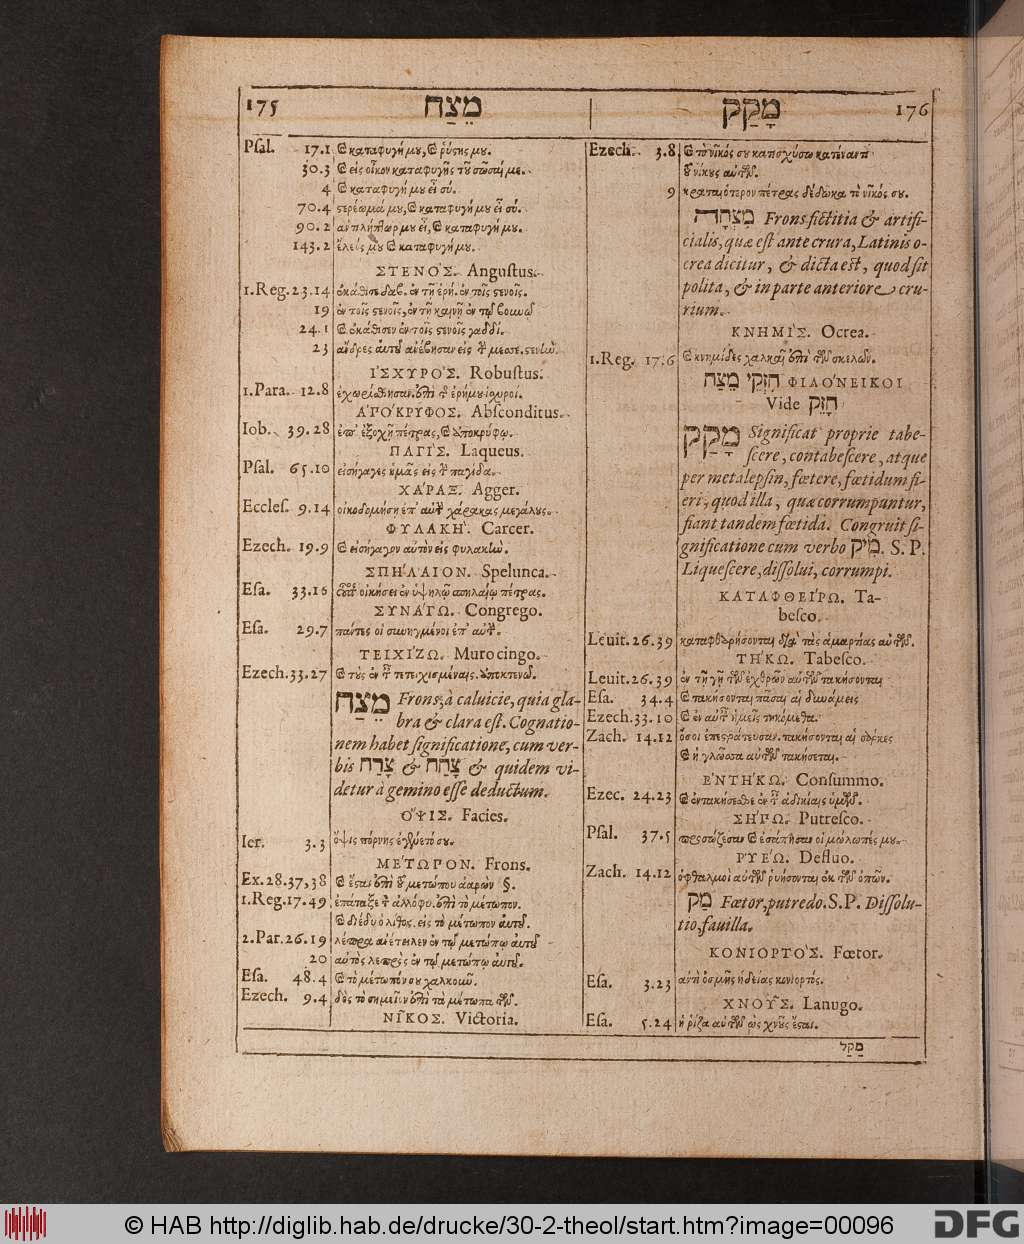 175 מֵצַח
Psal. 17.1 καταφυγή μου, ῥύστης μου.
30.3 εἰς οἶκον καταφυγῆς τοῦ σῶσαί με.
4 καταφυγή μου εἶ σύ.
70.4 στερέωμά μου, καταφυγή μου εἶ σύ.
90.2 ἀντιλήπτωρ μου εἶ, καταφυγή μου.
143.2 ἔλεός μου καταφυγή μου.
ΣΤΕΝΟΣ. Angustus.
1.Reg.23.14 ἐν τοῖς στενοῖς.
19 ἐν τοῖς στενοῖς, ἐν τῇ καινῇ ἐν τῷ βουνῷ
24.1 ἐκάθισεν ἐν τοῖς στενοῖς γαδδί.
23 ἄνδρες αὐτοῦ ἀνέβησαν εἰς
ἸΣΧΥΡΟΣ. Robustus.
1.Para. 12.8 ἐχωρίσθησαν ἀπὸ ἐρήμου ἰσχυροί.
ἈΠΟΚΡΥΦΟΣ. Absconditus.
Iob. 39.28 ἐπ' ἐξοχῇ πέτρας,
ΠΑΓΙΣ. Laqueus.
Psal. 65.10 εἰσήγαγες ἡμᾶς εἰς παγίδα.
ΧΑΡΑΞ. Agger.
Eccles. 9.14 οἰκοδομήσῃ ἐπ' αὐτὴν χάρακας μεγάλους.
ΦΥΛΑΚΗ. Carcer.
Ezech. 19.9 εἰσήγαγον αὐτὸν εἰς φυλακὴν.
ΣΠΗΛΑΙΟΝ. Spelunca.
Esa. 33.16 οὗτος οἰκήσει ἐν ὑψηλῷ σπηλαίῳ πέτρας.
ΣΥΝΑΓΩ. Congrego.
Esa. 29.7 πάντες οἱ συνηγμένοι ἐπ' αὐτὴν.
ΤΕΙΧΙΖΩ. Muro cingo.
Ezech.33.27 τοὺς ἐν
מֵצַח Frons, à caluicie, quia gla-
bra & clara est. Cognatio-
nem habet significatione, cum ver-
bis צָרַח & צָחַח & quidem vi-
detur à gemino esse deductum.
ὌΨΙΣ. Facies.
Ier. 3.3 ὄψις πόρνης ἐγένετό σου.
ΜΕΤΩΠΟΝ. Frons.
Ex.28.37,38 ἔσται ἐπὶ τοῦ μετώπου ἀαρὼν §.
1.Reg.17.49 ἐπάταξε τὸν ἀλλόφυ. ἐπὶ τὸ μέτωπον.
διέδυ ὁ λίθος. εἰς τὸ μέτωπον αὐτοῦ.
2.Par.26.19 λέπρα ἀνέτειλεν ἐν τῷ μετώπῳ αὐτοῦ
20 αὐτὸς λεπρὸς ἐν τῷ μετώπῳ αὐτοῦ.
Esa. 48.4 τὸ μέτωπόν σου χαλκοῦν.
Ezech. 9.4 δὸς τὸ σημεῖον ἐπὶ τὰ μέτωπα τῶν.
ΝΙΚΟΣ. Victoria.
מָקַק 176
Ezech. 3.8 τὸ νῖκός σου κατισχύσω κατέναντι
τοῦ νίκους αὐτῶν.
9 κραταιότερον πέτρας δέδωκα τὸ νῖκός σου.
מִצְחָה Frons fictitia & artifi-
cialis, quæ est ante crura, Latinis o-
crea dicitur, & dicta est, quod sit
polita, & in parte anteriore cru-
rium.
ΚΝΗΜΙΣ. Ocrea.
1.Reg. 17.6 κνημῖδες χαλκαῖ ἐπὶ τῶν σκελῶν.
חִזְקֵי מֵצַח ΦΙΛΟΝΕΙΚΟΙ
Vide חָזַק
מָקַק Significat proprie tabe-
scere, contabescere, atque
per metalepsin, fœtere, fœtidum fi-
eri, quod illa, quæ corrumpuntur,
fiant tandem fœtida. Congruit si-
gnificatione cum verbo מִיק. S. P.
Liquescere, dissolui, corrumpi.
ΚΑΤΑΦΘΕΙΡΩ. Ta-
besco.
Leuit.26.39 καταφθαρήσονται διὰ τὰς ἁμαρτίας αὐτῶν.
ΤΗΚΩ. Tabesco.
Leuit.26.39 ἐν τῇ γῇ τῶν ἐχθρῶν αὐτῶν τακήσονται
Esa. 34.4 τακήσονται πᾶσαι αἱ δυνάμεις
Ezech.33.10 ἐν αὐταῖς ἡμεῖς τηκόμεθα.
Zach. 14.12 ὅσοι ἐπεστράτευσαν. τακήσονται αἱ σάρκες
ἡ γλῶσσα αὐτῶν τακήσεται.
ἘΝΤΗΚΩ. Consummo.
Ezec. 24.23 ἐντακήσεσθε ἐν ταῖς ἀδικίαις ὑμῶν.
ΣΗΠΩ. Putresco.
Psal. 37.5 προσώζεσαν ἐσάπησαν οἱ μώλωπές μου.
ΡΥΕΩ. Defluo.
Zach. 14.12 ὀφθαλμοὶ αὐτῶν ῥυήσονται ἐκ τῶν ὀπῶν.
מַק Fœtor, putredo. S.P. Dissolu-
tio, fauilla.
ΚΟΝΙΟΡΤΟΣ. Fœtor.
Esa. 3.23 ἀντὶ ὀσμῆς ἡδείας κονιορτός.
ΧΝΟΥΣ. Lanugo.
Esa. 5.24 ἡ ῥίζα αὐτῶν ὡς χνοῦς ἔσται.
מַקֵּל
© HAB http://diglib.hab.de/drucke/30-2-theol/start.htm?image=00096
DFG